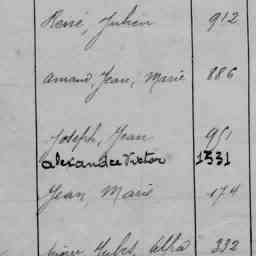 René, Julien 912
Armand, Jean, Marie 886
Joseph, Jean 951
alexandre Victor 1331
Jean, Marie 174
Jules, 332